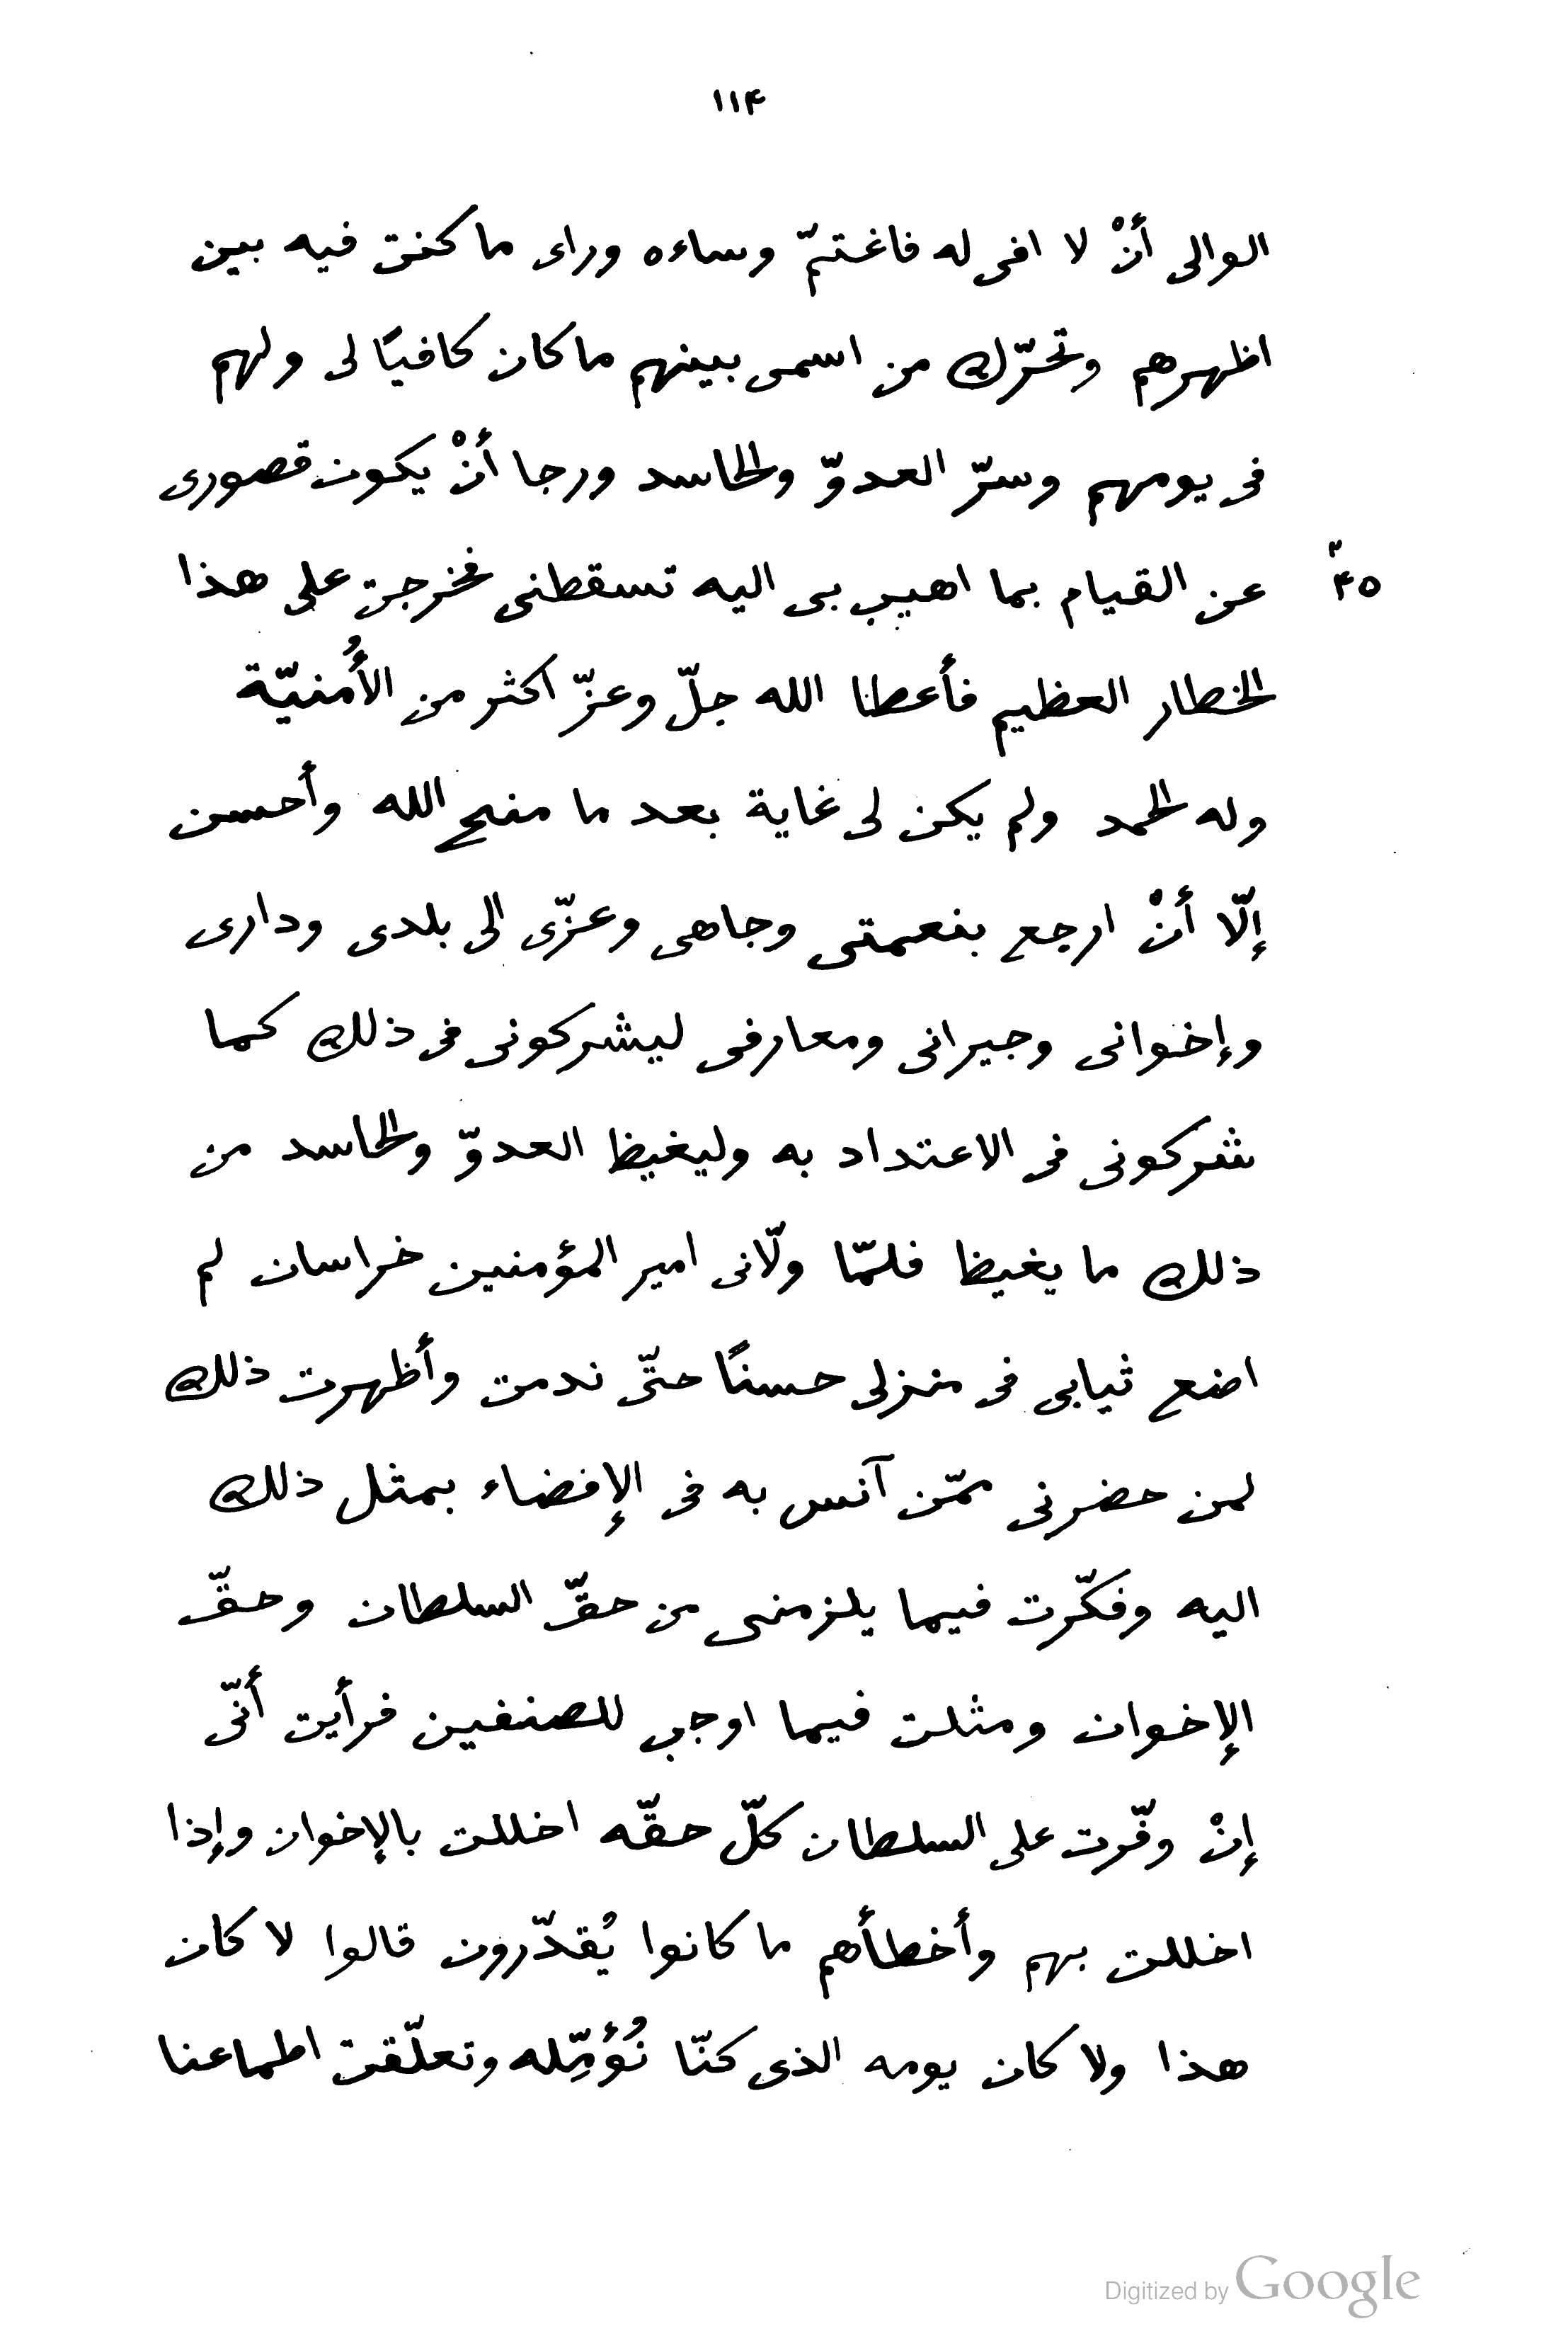 ١١۴
الوالى أنْ لا افى له فاغتمّ وساءه وراى ما كنت فيه بين
اظهرهم وتحرّك من اسمى بينهم ما كان كافيًا لى ولهم
فى يومهم وسرّ العدوّ والحاسد ورجا أنْ يكون قصورى
عن القيام بما اهيب بى اليه تسقطنى فخرجت على هذا
۴٥
الخطار العظيم فأعطنا الله جلّ وعزّ اكثر من الأُمنيّة
وله الحمد ولم يكن لى غاية بعد ما منح الله وأحسن
إلّا أنْ ارجع بنعمتى وجاهى وعزّى الى بلدى ودارى
وإخوانى وجيرانى ومعارفى ليشركونى فى ذلك كما
شركونى فى الاعتداد به وليغيظ العدوّ والحاسد من
ذلك ما يغيظ فلمّا ولّانى امير المؤمنين خراسان لم
اضع ثيابى فى منزلى حسنًا حتّى ندمت وأظهرت ذلك
لمن حضرنى ممّن آنس به فى الإفضاء بمثل ذلك
اليه وفكّرت فيما يلزمنى من حقّ السلطان وحقّ
الإخوان ومثلت فيما اوجب للصنفين فرأيت أنّى
إنْ وفّرت على السلطان كلّ حقّه اخللت بالإخوان وإذا
اخللت بهم وأخطأهم ما كانوا يُقدّرون قالوا لا كان
هذا ولا كان يومه الذى كنّا نُؤمِّله وتعلّقت اطماعنا
Digitized by Google